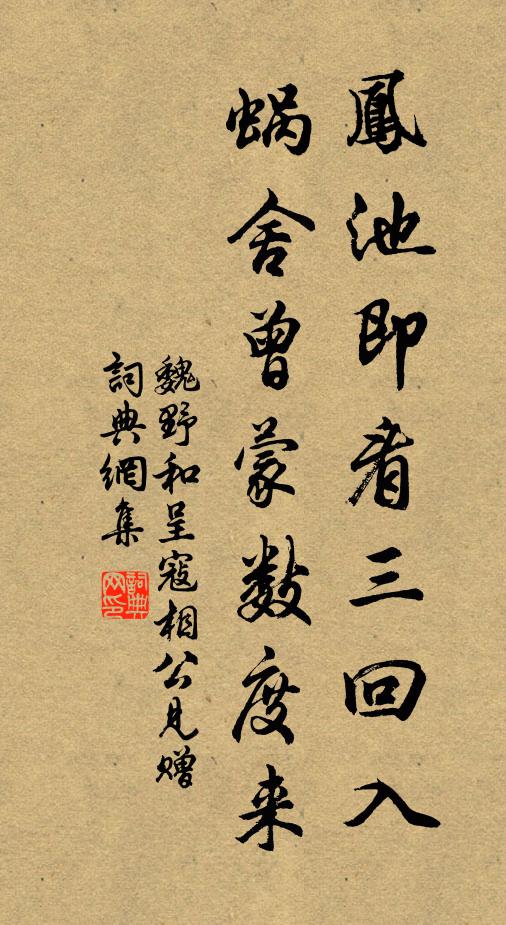 鳳池即看三回入
蝸舍曾蒙數度来
魏野和呈寇相公見贈
詞典網集
詞典网印